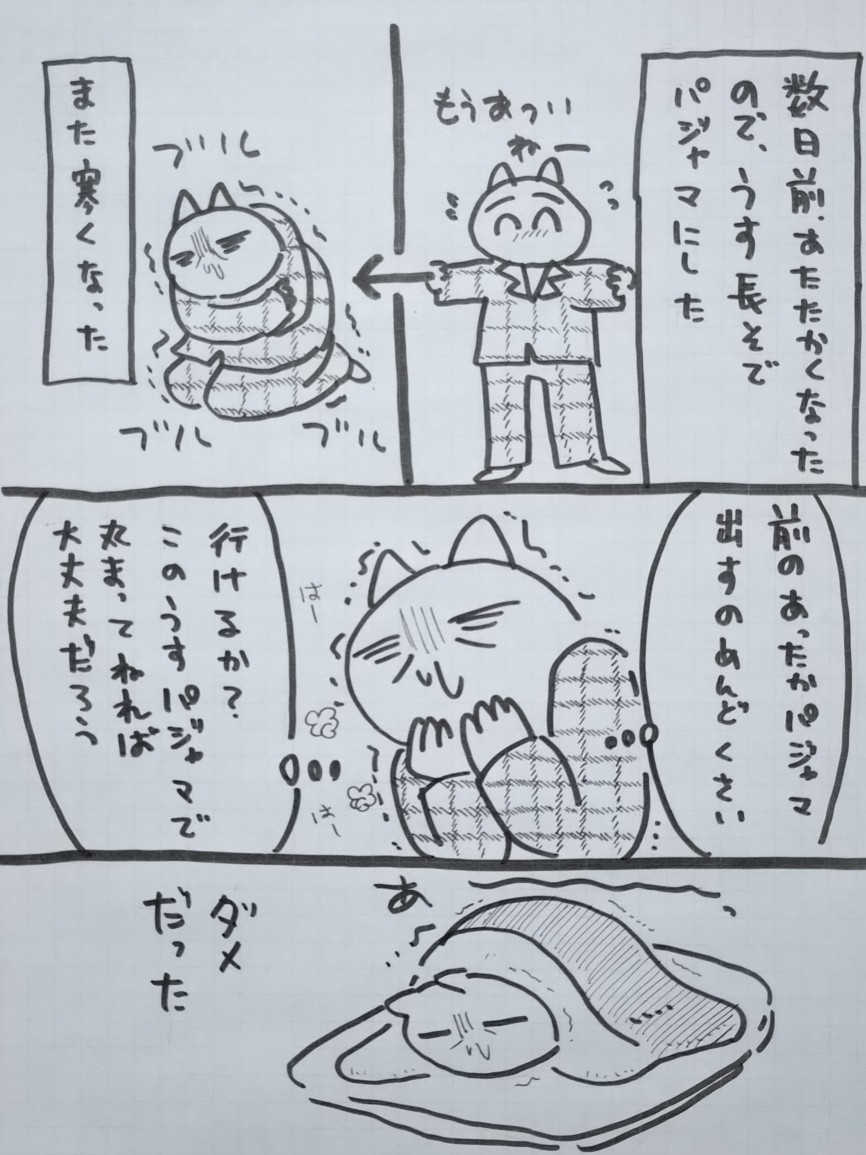 数日前、あたたかくなった
ので、うす長そで
パジャマにした
もうあつい
ねー
また寒くなった
ブルル
ブルル
ブルル
前のあったかパジャマ
出すのめんどくさい
はー
はー
行けるか?
このうすパジャマで
丸まってねれば
大丈夫だろう
あ
ダメ
だった